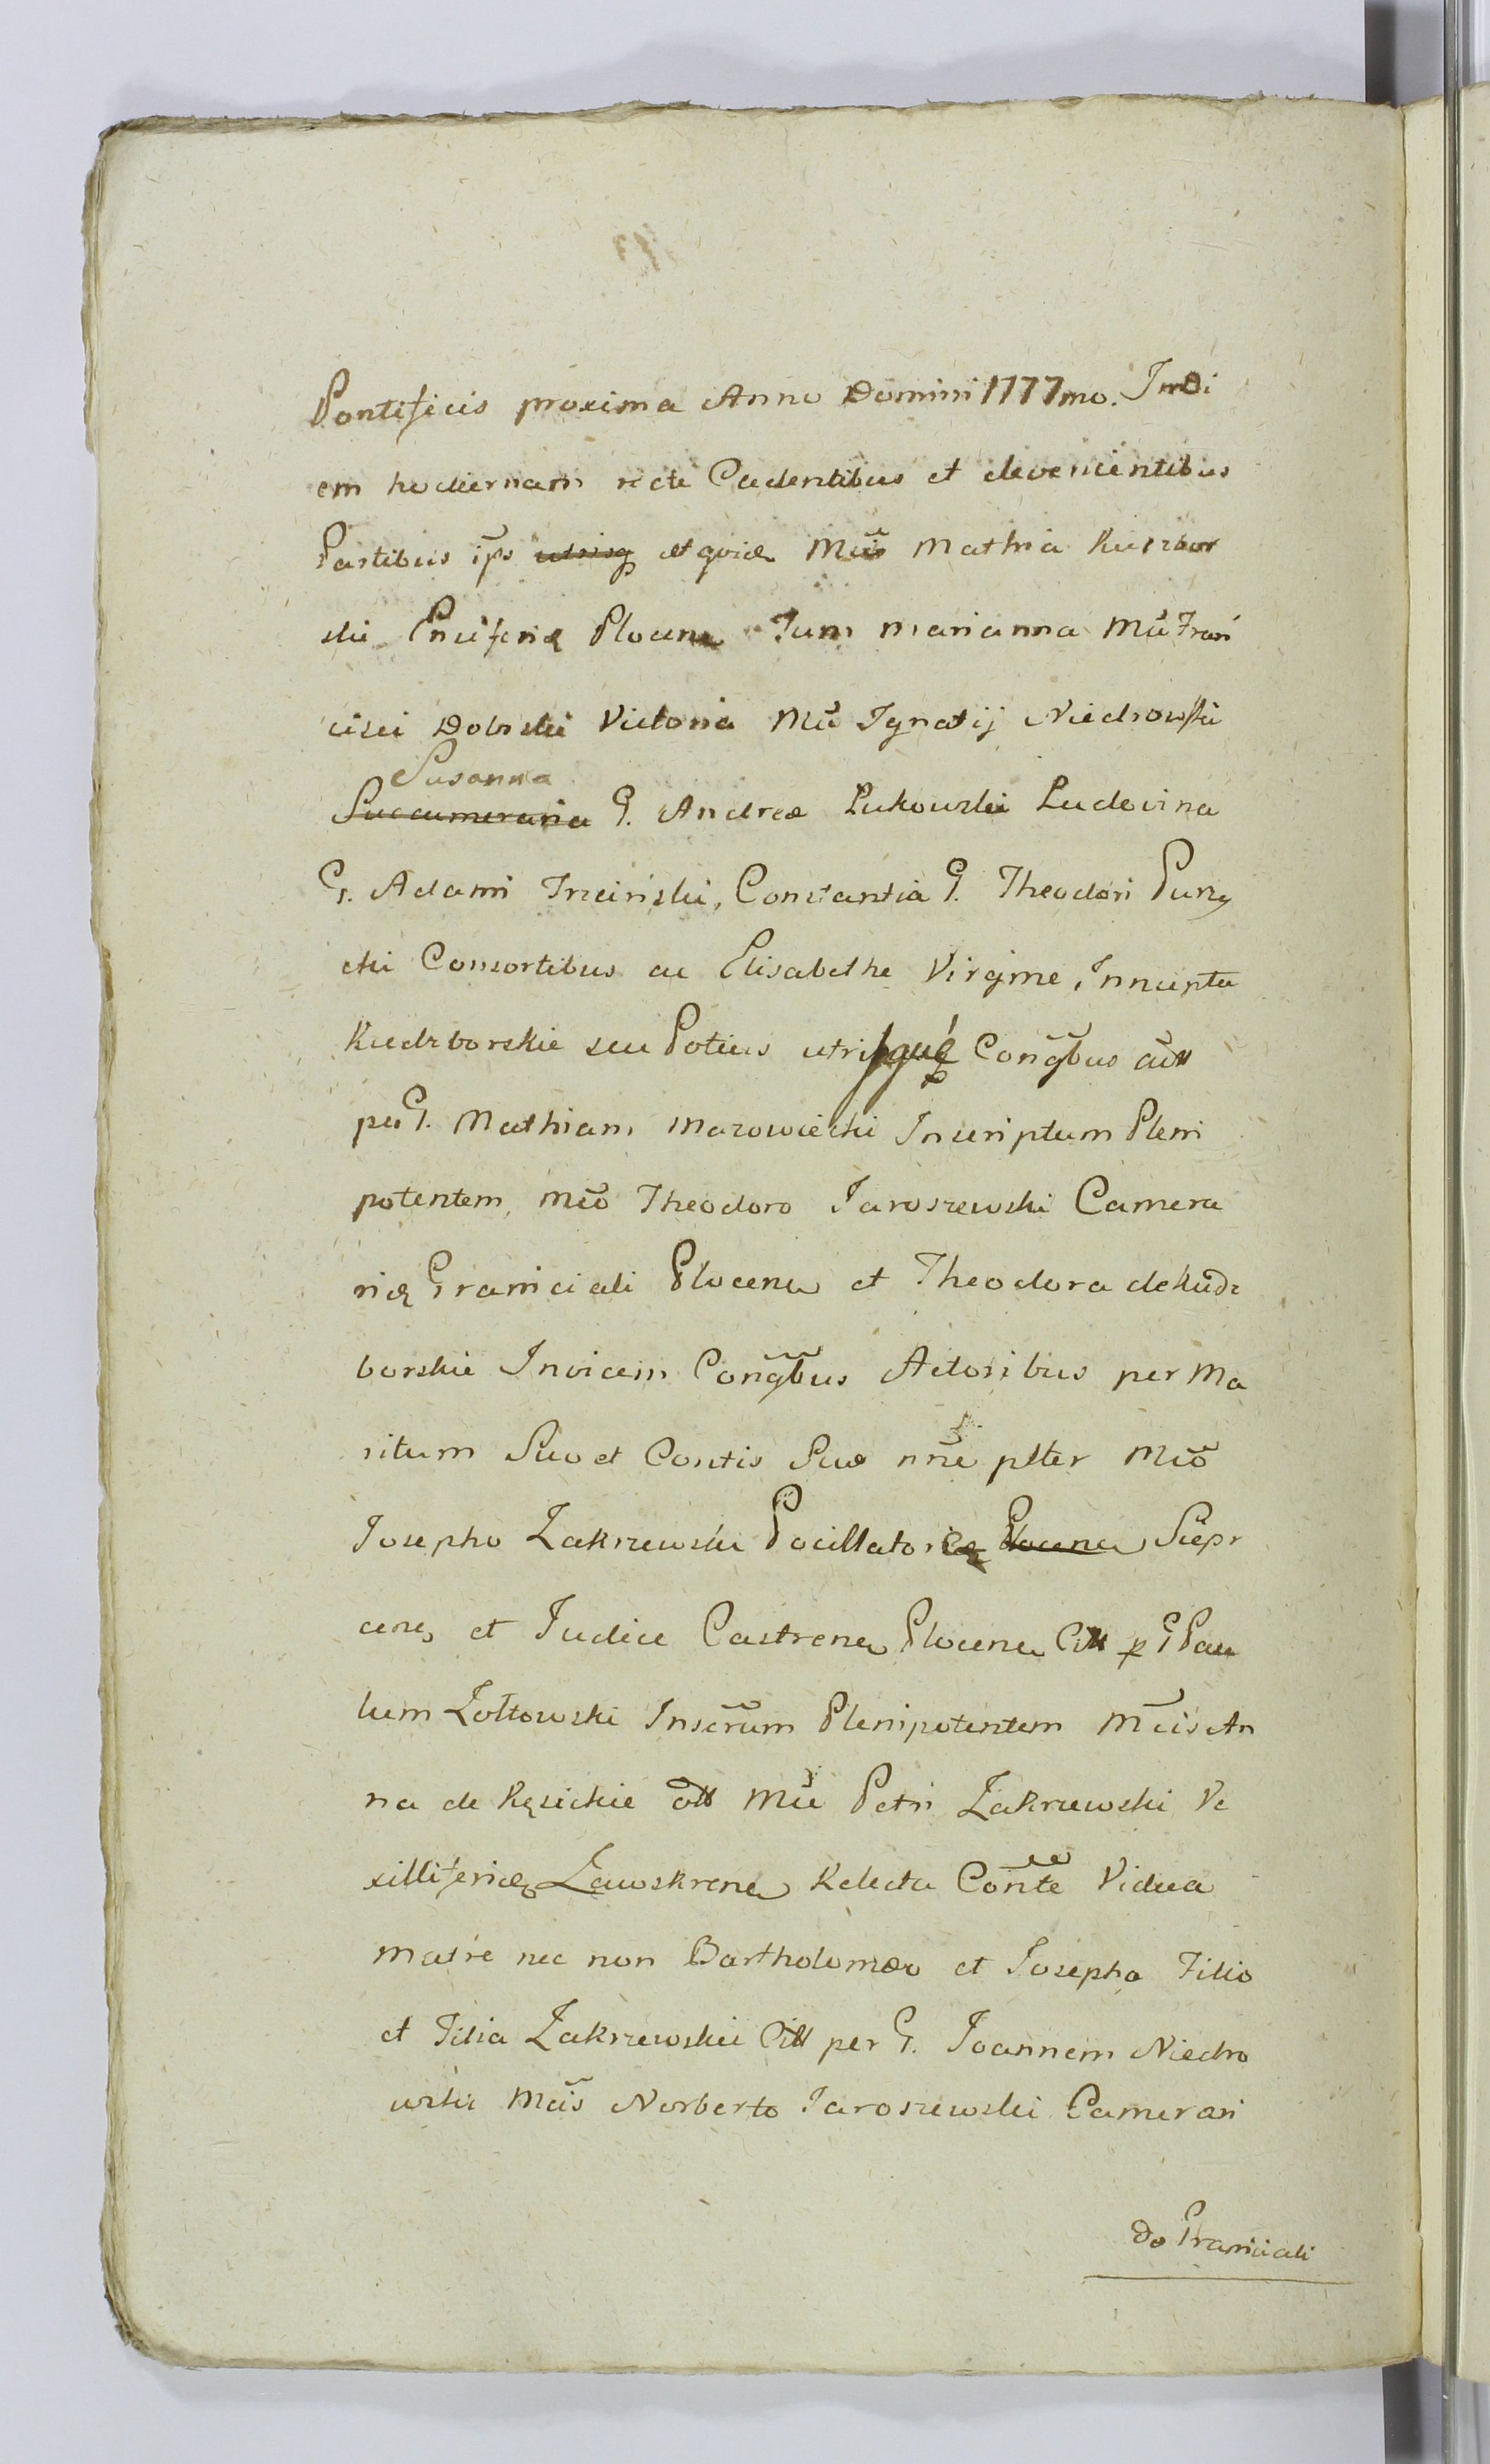 Pontificis proxima Anno Domini 1777mo. In Di
em hodiernam recte Cadentibus et devenientibus
Partibus ips utrisq et quidē Mcis Mathia Kuczbor
ski Ensiferiæ Plocen. Tum Marianna Mci Fran
cisci Dobrski Victoria Mci Ignatij Niedrowski
Susanna
Succameraria G. Andreæ Lukowski Ludovina
G. Adami Trzcinski, Constantia G. Theodori Purzy
cki Consortibus ac Elisabethe Virgine, Innupta
Kuczborskie seu Potius utrisque Congbus citt
per G. Mathiam Mazowiecki Inscriptum Pleni
potentem, Mco Theodoro Jaroszewski Camera
rio Graniciali Plocen et Theodora de Kudz
borskie Invicem Congbus Actoribus per Ma
ritum Suo et Contis Suæ nñe plter Mco
Josepho Zakrzewski Pocillatore Plocen Siepr
cens et Judice Castren Plocen Citt p G Pau
lum Zołtowski Inscrum Plenipotentem Mcis An
na de Kęsickie olt Mci Petri Zakrzewski Ve
xilliferi Zawskren Relicta Conte Vidua
Matre nec non Bartholomæo et Josepha Filio
et Filia Zakrzewskie Citt per G. Joannem Niedro
wski Mcis Norberto Jaroszewski Camerari
do Graniciali